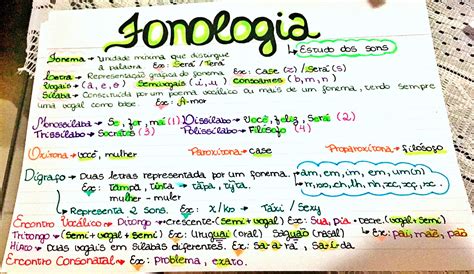 Fonologia
Estudo dos sons
Fonema → Unidade mínima que distingue
a palavra. Ex: Será / Terá
Letra → Representação gráfica do fonema. Ex: Case (z) / Será (s)
Vogais → (a, e, o) Semivogais (i, u) consoantes (b, m, n)
Sílaba → Constituída por um fonema vocálico ou mais de um fonema, tendo sempre
uma vogal como base. Ex: A-mor
Monossílaba → Se, for, mai (1) Dissílaba → Você, feliz, Será (2)
Trissílaba → Socrates (3) Polissílaba → Filósofo (4)
Oxítona → você, mulher Paroxítona → case Proparoxítona → filósofo
Dígrafo → Duas letras representada por um fonema.
Ex: Tampa, tinta → tãpa, tĩta,
mulher - muler
am, em, im, om, um (n)
rr, ss, ch, lh, nh, xc, xç, sc..
Representa 2 sons. Ex: x/ks → Táxi / Sexy
Encontro Vocálico → Ditongo → crescente-(semi+vogal) Ex: Sua, pia → decre.(vogal+semi)
Tritongo → (semi+vogal+semi) Ex: Uruguai (oral) Saguão (nasal) Ex: pai, mãe, pão
Hiato → Duas vogais em sílabas diferentes. Ex: Sa-a-rá, Sa-í-da
Encontro Consonatal → Ex: problema, exato.